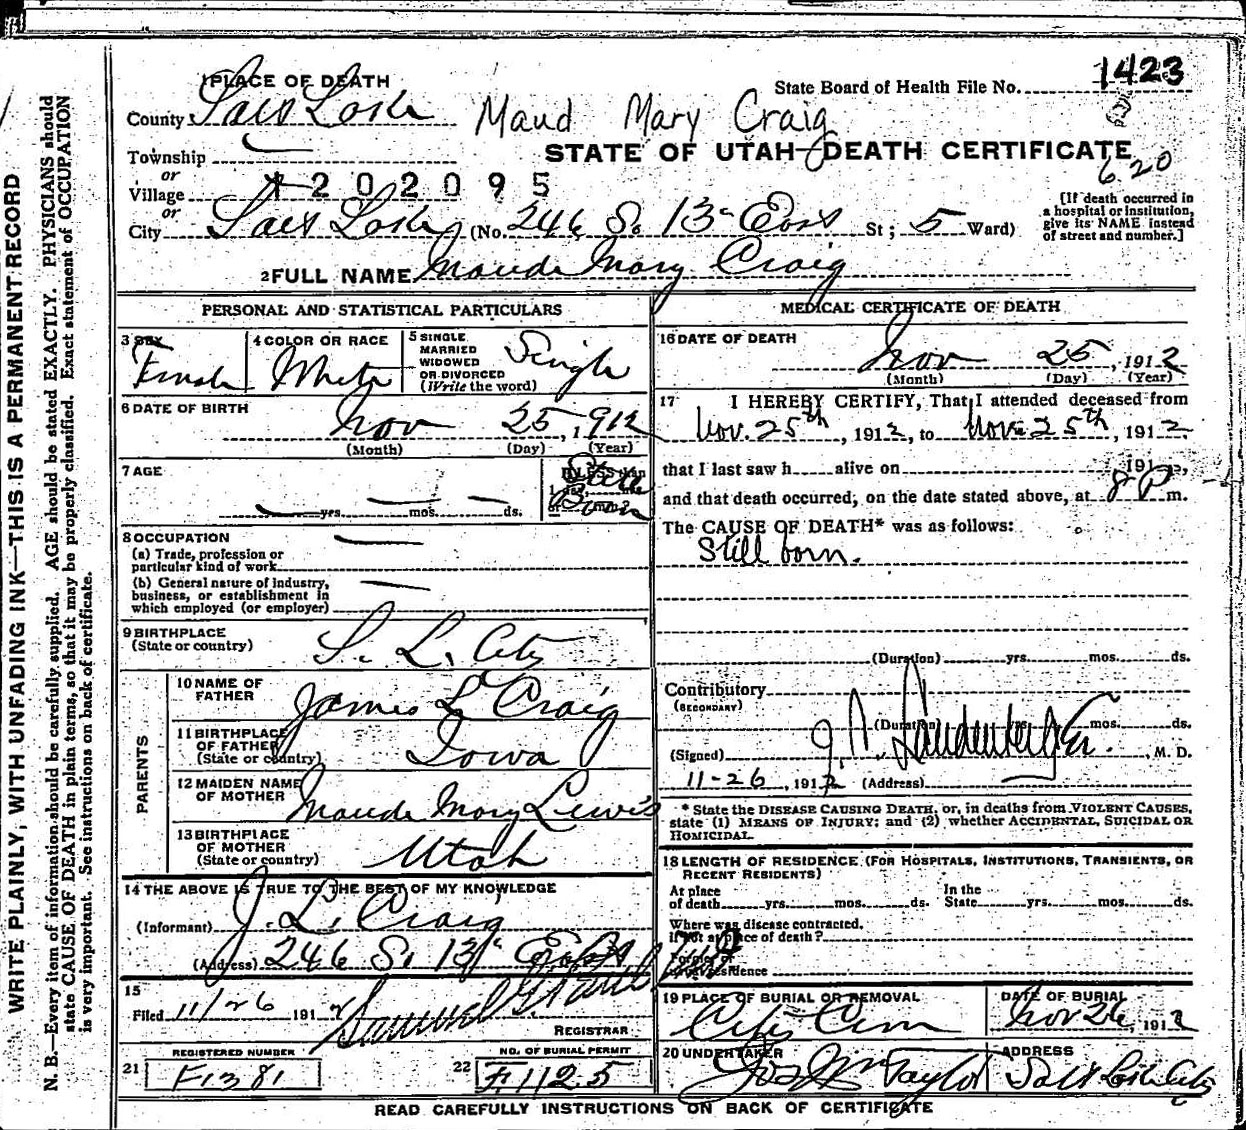 1 PLACE OF DEATH
State Board of Health File No. 1423
County Salt Lake
Maud Mary Craig
Township
STATE OF UTAH—DEATH CERTIFICATE
or
Village
202095
6.20
or
City Salt Lake (No. 246 So. 13" East St; 5 Ward)
[If death occurred in a hospital or institution, give its NAME instead of street and number.]
2 FULL NAME Maude Mary Craig
PERSONAL AND STATISTICAL PARTICULARS
3 SEX Female
4 COLOR OR RACE White
5 SINGLE MARRIED WIDOWED OR DIVORCED (Write the word) Single
6 DATE OF BIRTH
Nov 25, 1912
(Month) (Day) (Year)
7 AGE
Still Born
yrs. mos. ds.
8 OCCUPATION
(a) Trade, profession or
particular kind of work
(b) General nature of industry,
business, or establishment in
which employed (or employer)
9 BIRTHPLACE
(State or country) S. L. City
PARENTS
10 NAME OF
FATHER James L Craig
11 BIRTHPLACE
OF FATHER
(State or country) Iowa
12 MAIDEN NAME
OF MOTHER Maude Mary Lewis
13 BIRTHPLACE
OF MOTHER
(State or country) Utah
14 THE ABOVE IS TRUE TO THE BEST OF MY KNOWLEDGE
(Informant) J. L. Craig
(Address) 246 So. 13" East
15
Filed 11/26 1912
REGISTRAR
REGISTERED NUMBER
21 F1381
NO. OF BURIAL PERMIT
22 F.1125
MEDICAL CERTIFICATE OF DEATH
16 DATE OF DEATH
Nov 25, 1912
(Month) (Day) (Year)
17 I HEREBY CERTIFY, That I attended deceased from
Nov. 25th, 1912, to Nov. 25th, 1912,
that I last saw h alive on 191 ,
and that death occurred, on the date stated above, at 8 P m.
The CAUSE OF DEATH* was as follows:
Still born.
(Duration) yrs. mos. ds.
Contributory
(SECONDARY)
(Duration) yrs. mos. ds.
(Signed) M. D.
11-26, 1912 (Address)
* State the DISEASE CAUSING DEATH, or, in deaths from VIOLENT CAUSES,
state (1) MEANS OF INJURY; and (2) whether ACCIDENTAL, SUICIDAL OR
HOMICIDAL.
18 LENGTH OF RESIDENCE (FOR HOSPITALS, INSTITUTIONS, TRANSIENTS, OR
RECENT RESIDENTS)
At place In the
of death yrs. mos. ds. State yrs. mos. ds.
Where was disease contracted,
if not at place of death?
Former or
usual residence
19 PLACE OF BURIAL OR REMOVAL
City Cem
DATE OF BURIAL
Nov 26, 1912
20 UNDERTAKER
Jos Wm Taylor
ADDRESS
Salt Lake City
READ CAREFULLY INSTRUCTIONS ON BACK OF CERTIFICATE
WRITE PLAINLY, WITH UNFADING INK—THIS IS A PERMANENT RECORD
N. B.—Every item of information should be carefully supplied. AGE should be stated EXACTLY. PHYSICIANS should
state CAUSE OF DEATH in plain terms, so that it may be properly classified. Exact statement of OCCUPATION
is very important. See instructions on back of certificate.